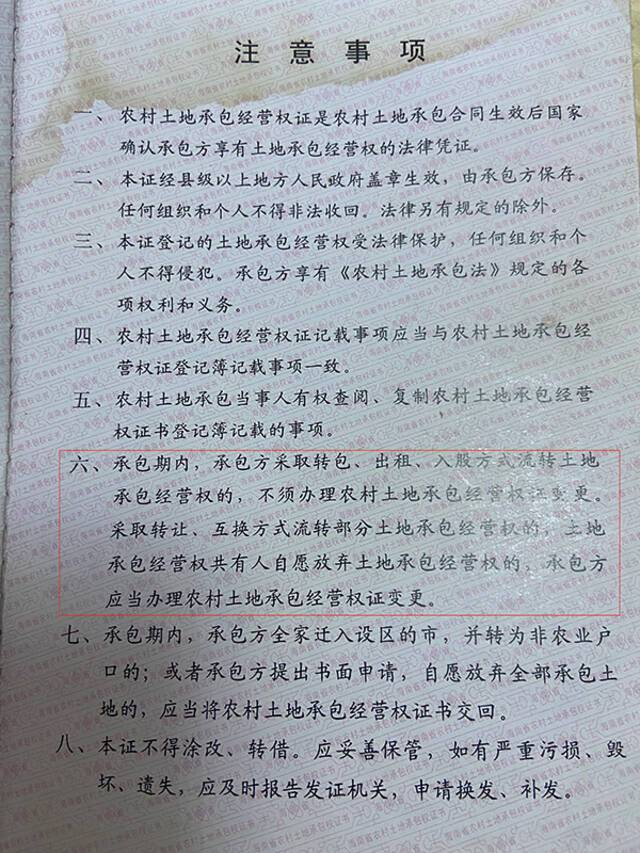 注意事项
一、农村土地承包经营权证是农村土地承包合同生效后国家
确认承包方享有土地承包经营权的法律凭证。
二、本证经县级以上地方人民政府盖章生效，由承包方保存。
任何组织和个人不得非法收回。法律另有规定的除外。
三、本证登记的土地承包经营权受法律保护，任何组织和个
人不得侵犯。承包方享有《农村土地承包法》规定的各
项权利和义务。
四、农村土地承包经营权证记载事项应当与农村土地承包经
营权证登记簿记载事项一致。
五、农村土地承包当事人有权查阅、复制农村土地承包经营
权证书登记簿记载的事项。
六、承包期内，承包方采取转包、出租、入股方式流转土地
承包经营权的，不须办理农村土地承包经营权证变更。
采取转让、互换方式流转部分土地承包经营权的，土地
承包经营权共有人自愿放弃土地承包经营权的，承包方
应当办理农村土地承包经营权证变更。
七、承包期内，承包方全家迁入设区的市，并转为非农业户
口的；或者承包方提出书面申请，自愿放弃全部承包土
地的，应当将农村土地承包经营权证书交回。
八、本证不得涂改、转借。应妥善保管，如有严重污损、毁
坏、遗失，应及时报告发证机关，申请换发、补发。